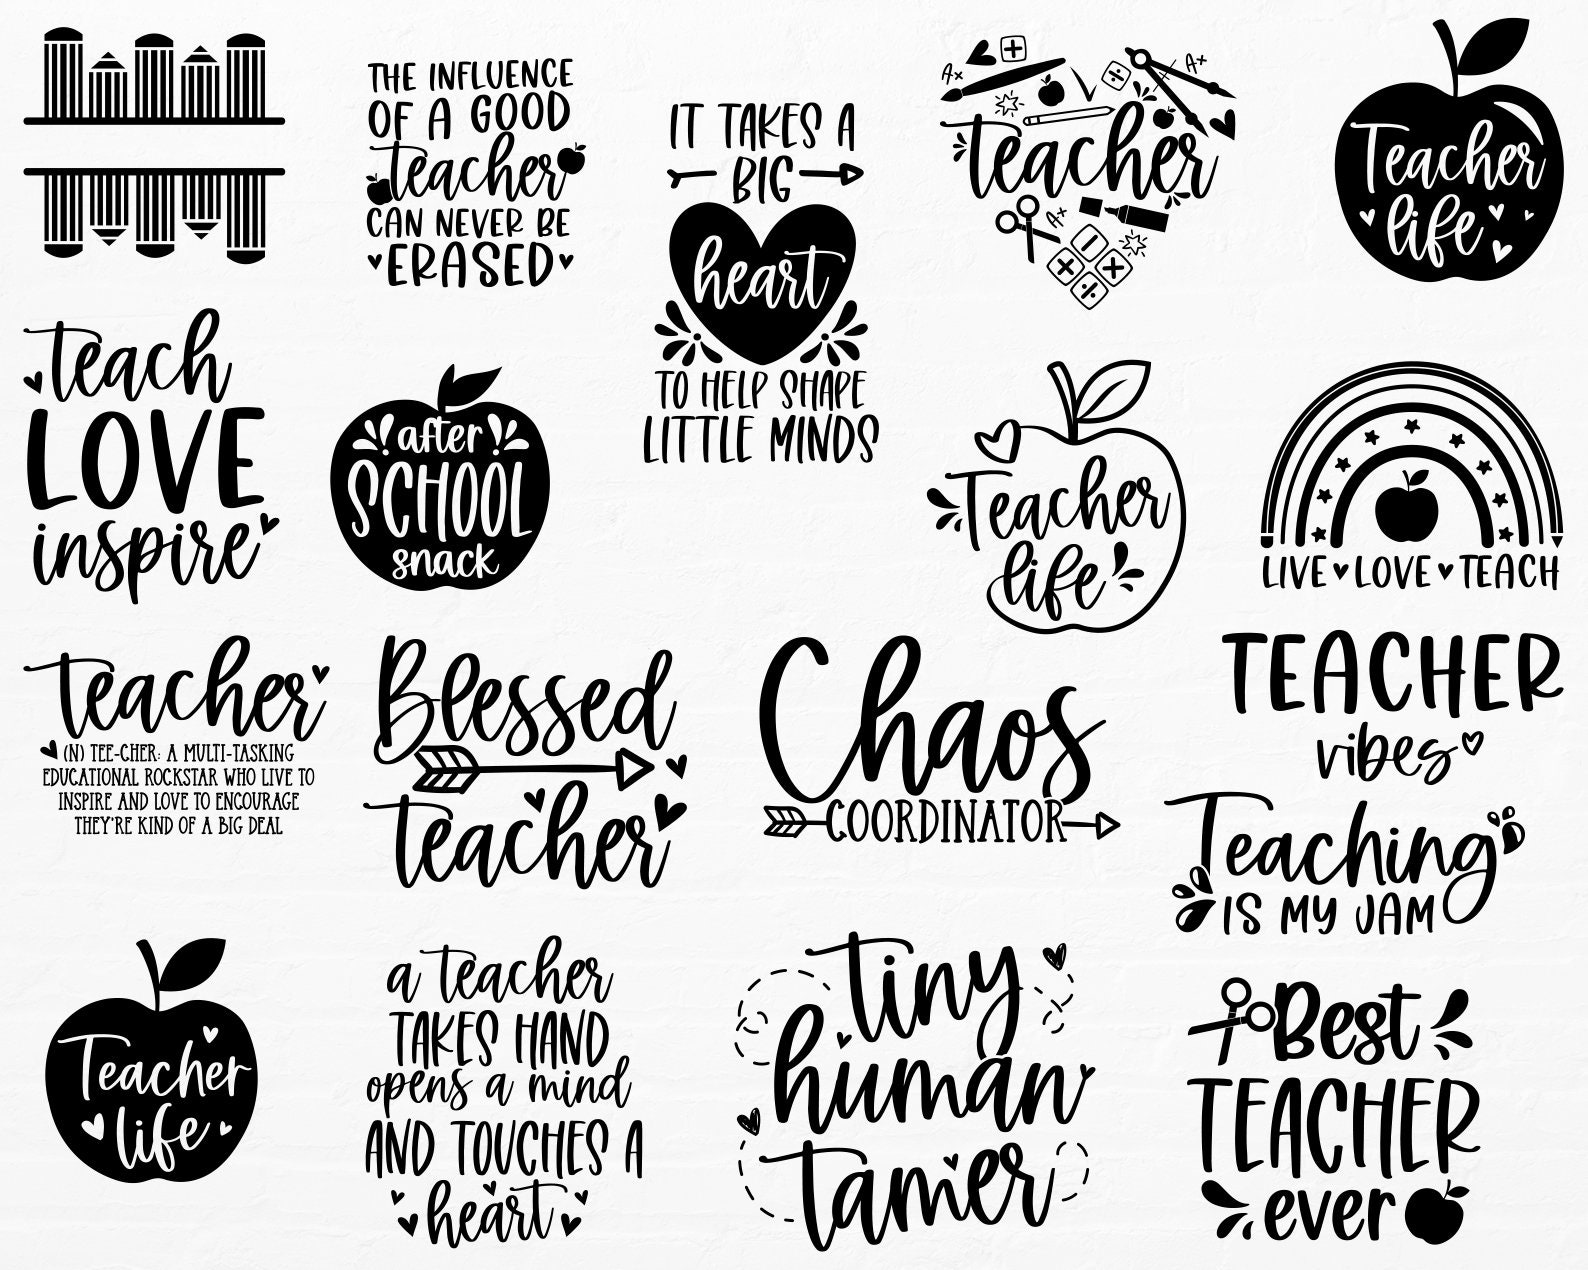 THE INFLUENCE
OF A GOOD
teacher
CAN NEVER BE
ERASED
IT TAKES A
BIG
heart
TO HELP SHAPE
LITTLE MINDS
A+
A+
teacher
A+
Teacher
life
teach
LOVE
inspire
after
SCHOOL
snack
Teacher
life
LIVE LOVE TEACH
teacher
(N) TEE-CHER: A MULTI-TASKING
EDUCATIONAL ROCKSTAR WHO LIVE TO
INSPIRE AND LOVE TO ENCOURAGE
THEY'RE KIND OF A BIG DEAL
Blessed
teacher
Chaos
COORDINATOR
TEACHER
vibes
Teaching
IS MY JAM
Teacher
life
a teacher
TAKES HAND
opens a mind
AND TOUCHES A
heart
tiny
human
tamer
Best
TEACHER
ever